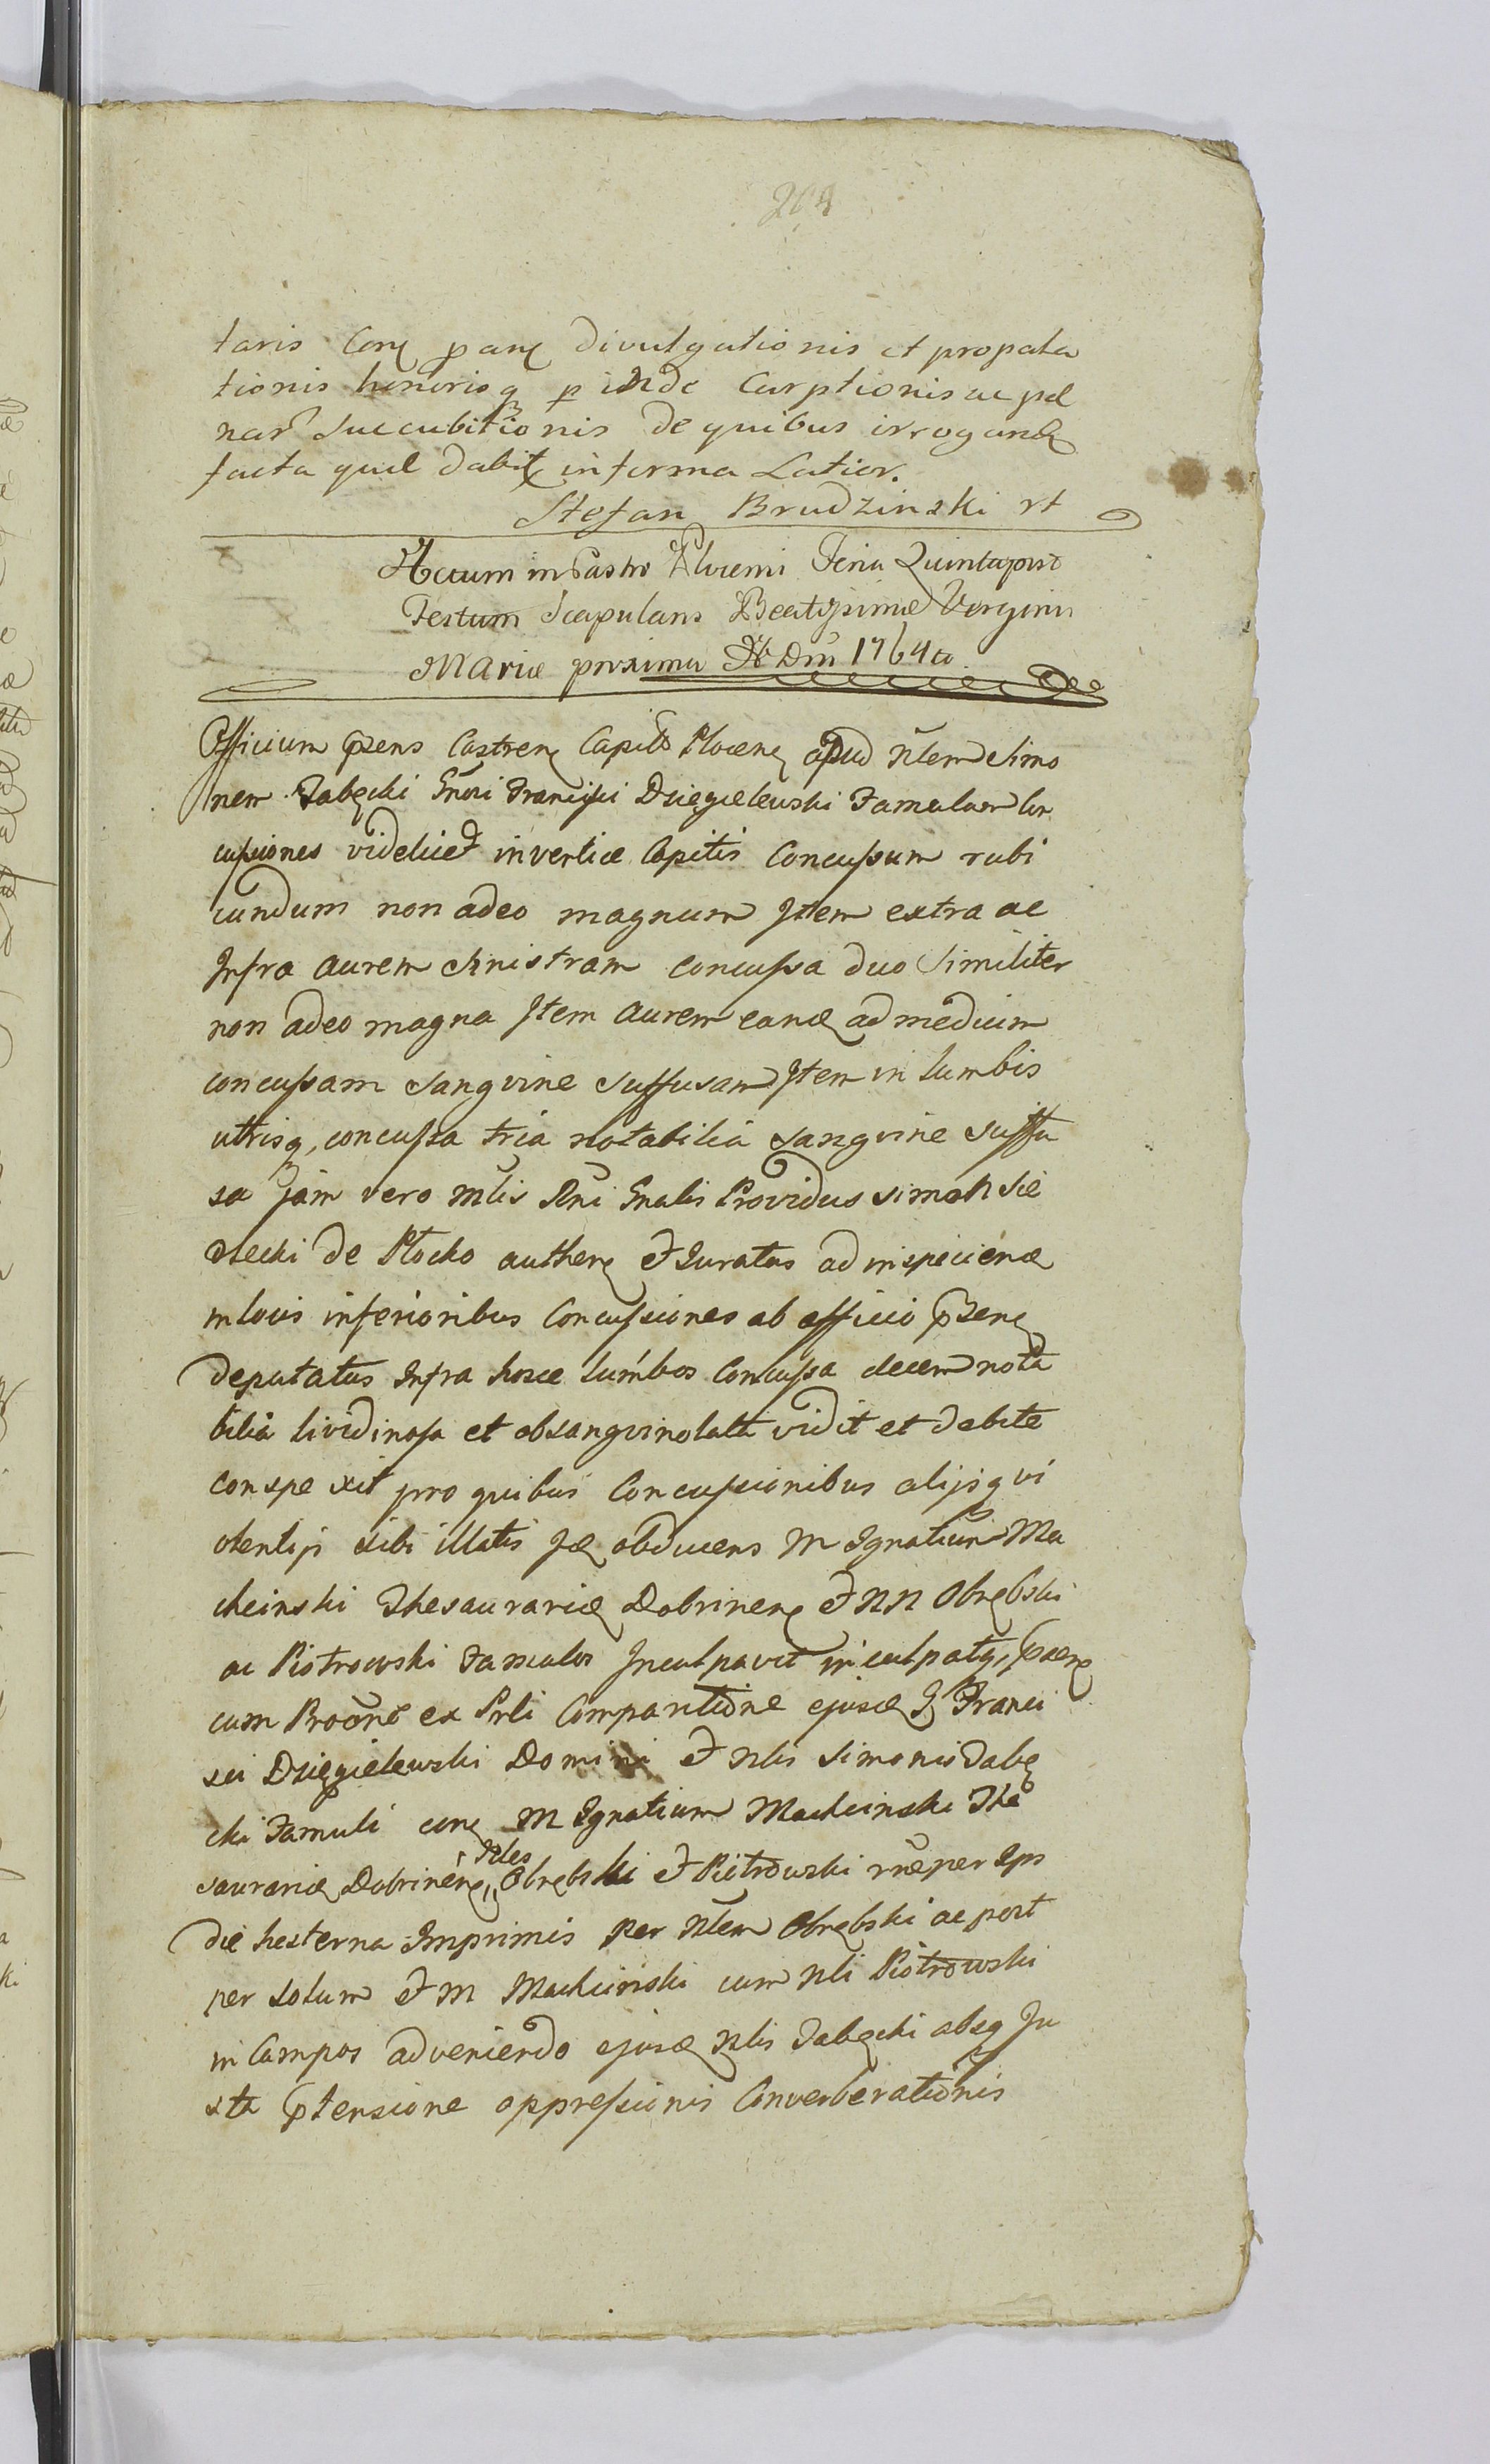 taris Conq paraq divulgationis et propala
tionis honorisq p inde Carptionis ac poe
nar Succubitionis de quibus irrogandq
facta quel dabit informa Latior.
Stefan Brudzinski rt
Actum in Castro Plocensi Feria Quinta post
Festum Scapularis Beatissimæ Virginis
Mariæ proxima Ao Dni 1764to
Officium præns Castrenq Capitle Plocenq apud Nlem Simo
nem Jabęcki Gnosi Francisci Dzięgielewski Famulum Con
cussiones videlicet in vertice Capitis Concussum rubi
cundum non adeo magnum Item extra ac
Infra aurem Sinistram concussa duo Similiter
non adeo magna Item aurem eandq ad medium
concussam sangvine suffusam Item in lumbis
utrisq, concussa tria notabilia sangvine suffu
sa jam vero Mlis Rni Gnalis Providus Simon Sie
dlecki de Płocko authenq et Juratus ad inspiciendq
in locis inferioribus Concussiones ab officio præsenq
deputatus Infra hosce lumbos Concussa decem nota
bilia lividinosa et obsangvinolatta vidit et debite
conspexit pro quibus Concussionibus alijsq vi
olentijs sibi illatis Idq obducens M Ignatium Ma
cheinski Thesauraridq Dobrinenq et NN Obrębski
ac Piotrowski Famulos Inculpavit inculpatq, præsenq
cum Proone ex Prli Comparitione ejusdq G Franci
sci Dzięgielewski Domini et Nlis Simonis Jabę
cki Famuli conq M Ignatium Macheinski The
sauraridq Dobrinenq, Nles Obrębski et Piotrowski rne per Ips
die hesterna Imprimis per Nlem Obrębski ac post
per solum et M Macheinski cum Nli Piotrowski
in Campos adveniendo ejusdq Nlis Jabęcki absq Ju
sta prtensione oppressionis Converberationis